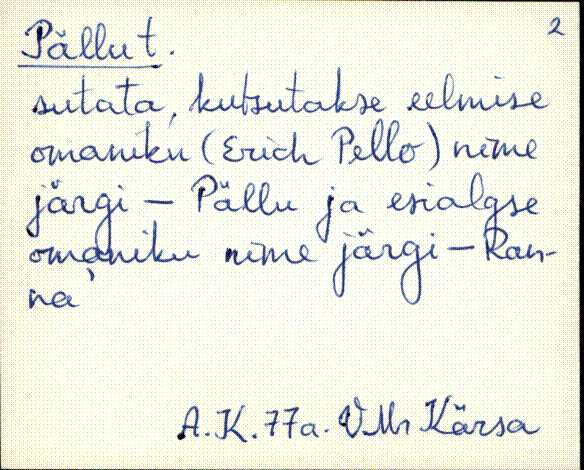 Pällu t.
2
sutata, kutsutakse eelmise
omaniku (Erich Pello) nime
järgi – Pällu ja esialgse
omaniku nime järgi – Ran-
na
A.K. 77a. VMr Kärsa